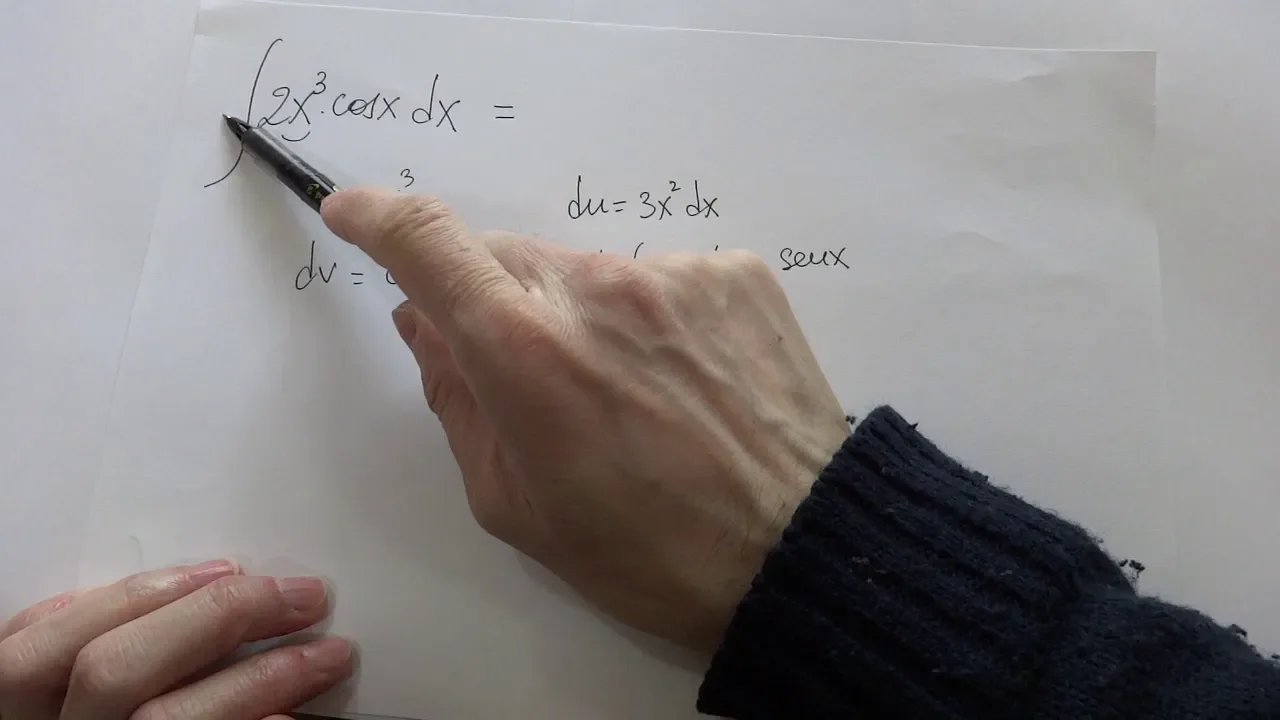 ∫2x³·cosx dx =
³ du = 3x² dx
dv = senx